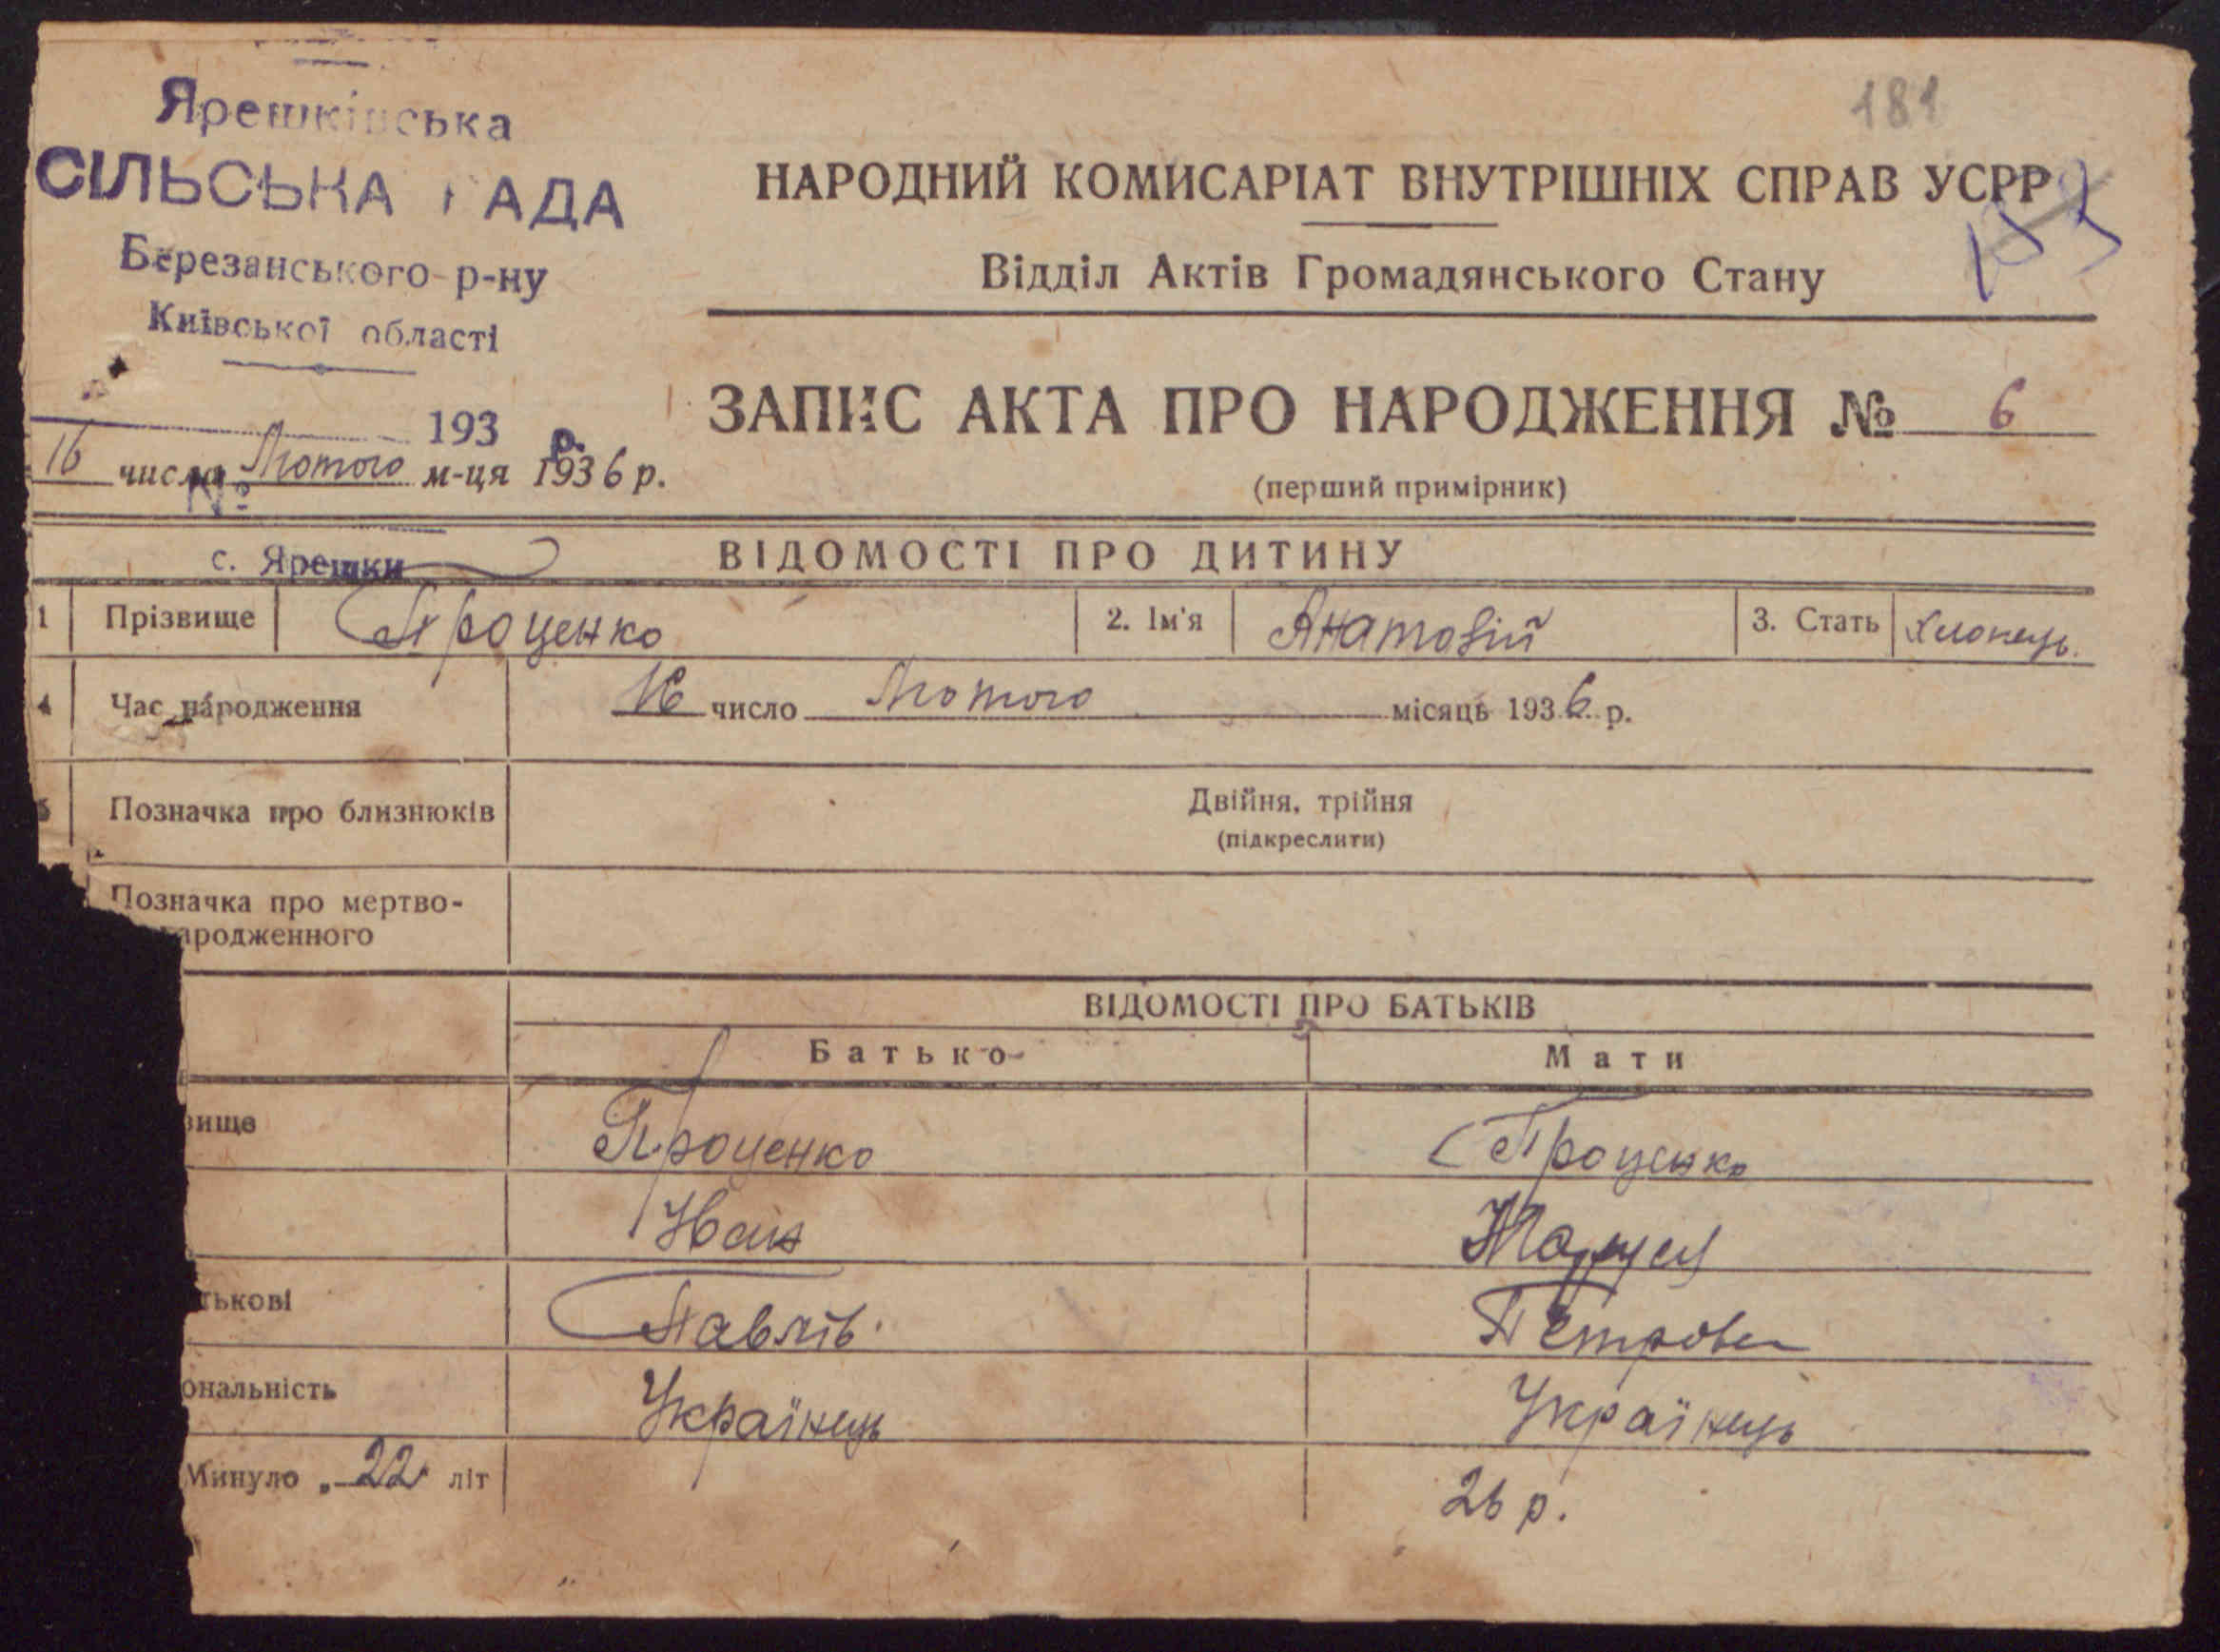 Ярешківська
181
СІЛЬСЬКА РАДА
Березанського р-ну
Київської області
НАРОДНИЙ КОМИСАРІАТ ВНУТРІШНІХ СПРАВ УСРР
Відділ Актів Громадянського Стану
193 р.
ЗАПИС АКТА ПРО НАРОДЖЕННЯ № 6
16 числа Лютого м-ця 1936 р.
№
(перший примірник)
с. Ярешки
ВІДОМОСТІ ПРО ДИТИНУ
1 Прізвище Проценко 2. Ім'я Анатолій 3. Стать Хлопець.
4 Час народження 16 число Лютого місяць 1936 р.
5 Позначка про близнюків Двійня, трійня
(підкреслити)
Позначка про мертво-
народженного
ВІДОМОСТІ ПРО БАТЬКІВ
Батько Мати
вище Проценко Проценко
Іван Маруся
тькові Павлів. Петровн
ональність Українець Українець
Минуло „ 22 літ 26 р.